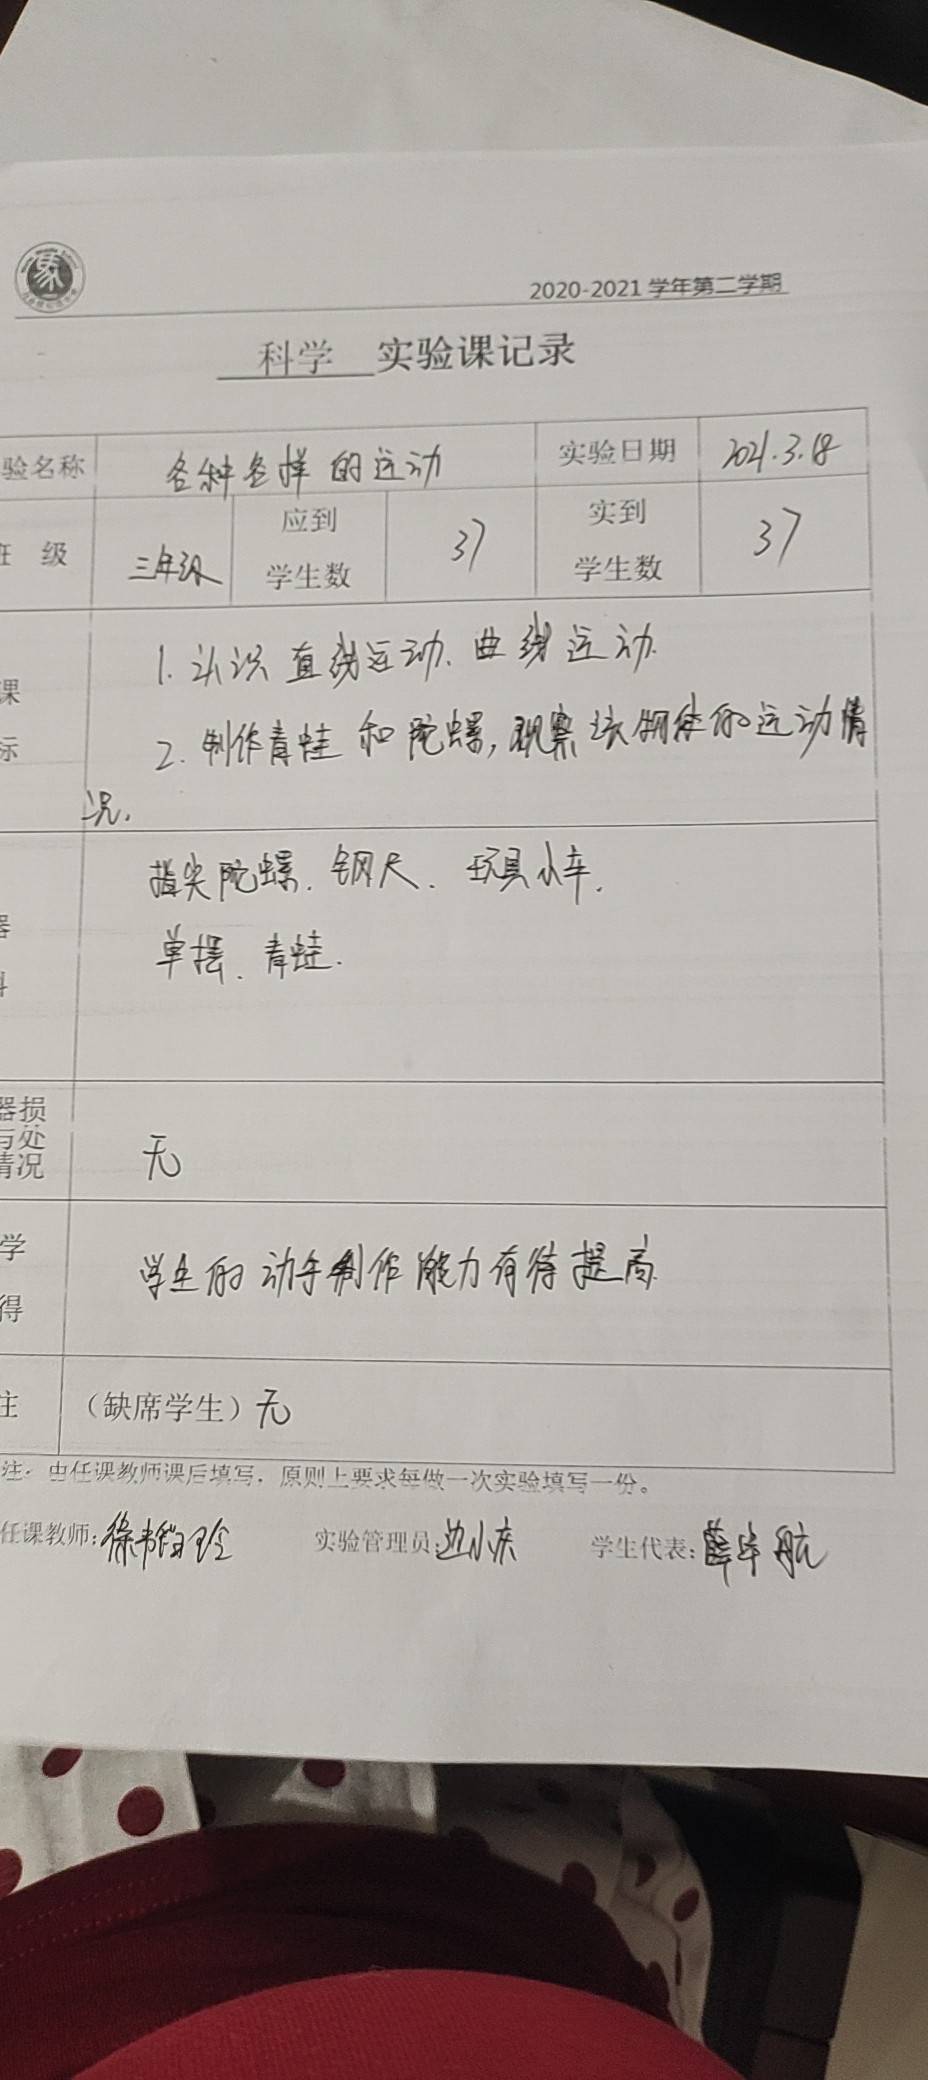 2020-2021 学年第二学期
科学 实验课记录
验名称 各种各样的运动 实验日期 2021.3.18
班 级 三年级 应到学生数 37 实到学生数 37
课
标
1. 认识直线运动、曲线运动.
2. 制作青蛙和陀螺,观察该物体的运动情
况.
器
料
指尖陀螺、钢尺、玩具小车、
单摆、青蛙.
器损
与处
情况
无
学
得
学生的动手制作能力有待提高.
注 (缺席学生)无
注：由任课教师课后填写，原则上要求每做一次实验填写一份。
任课教师: 实验管理员:边小东 学生代表:薛华航